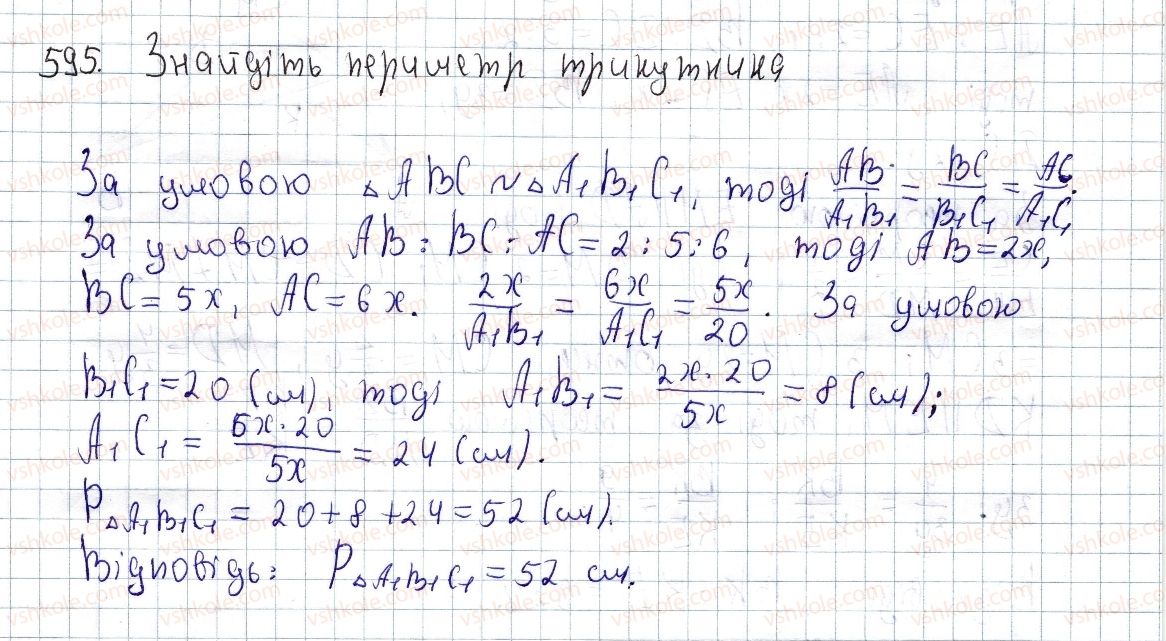 595. Знайдіть периметр трикутника
За умовою △ABC ~ △A₁B₁C₁, тоді AB/A₁B₁ = BC/B₁C₁ = AC/A₁C₁.
За умовою AB : BC : AC = 2 : 5 : 6, тоді AB = 2x,
BC = 5x, AC = 6x. 2x/A₁B₁ = 6x/A₁C₁ = 5x/20. За умовою
B₁C₁ = 20 (см), тоді A₁B₁ = 2x·20/5x = 8 (см);
A₁C₁ = 6x·20/5x = 24 (см).
P△A₁B₁C₁ = 20 + 8 + 24 = 52 (см).
Відповідь: P△A₁B₁C₁ = 52 см.